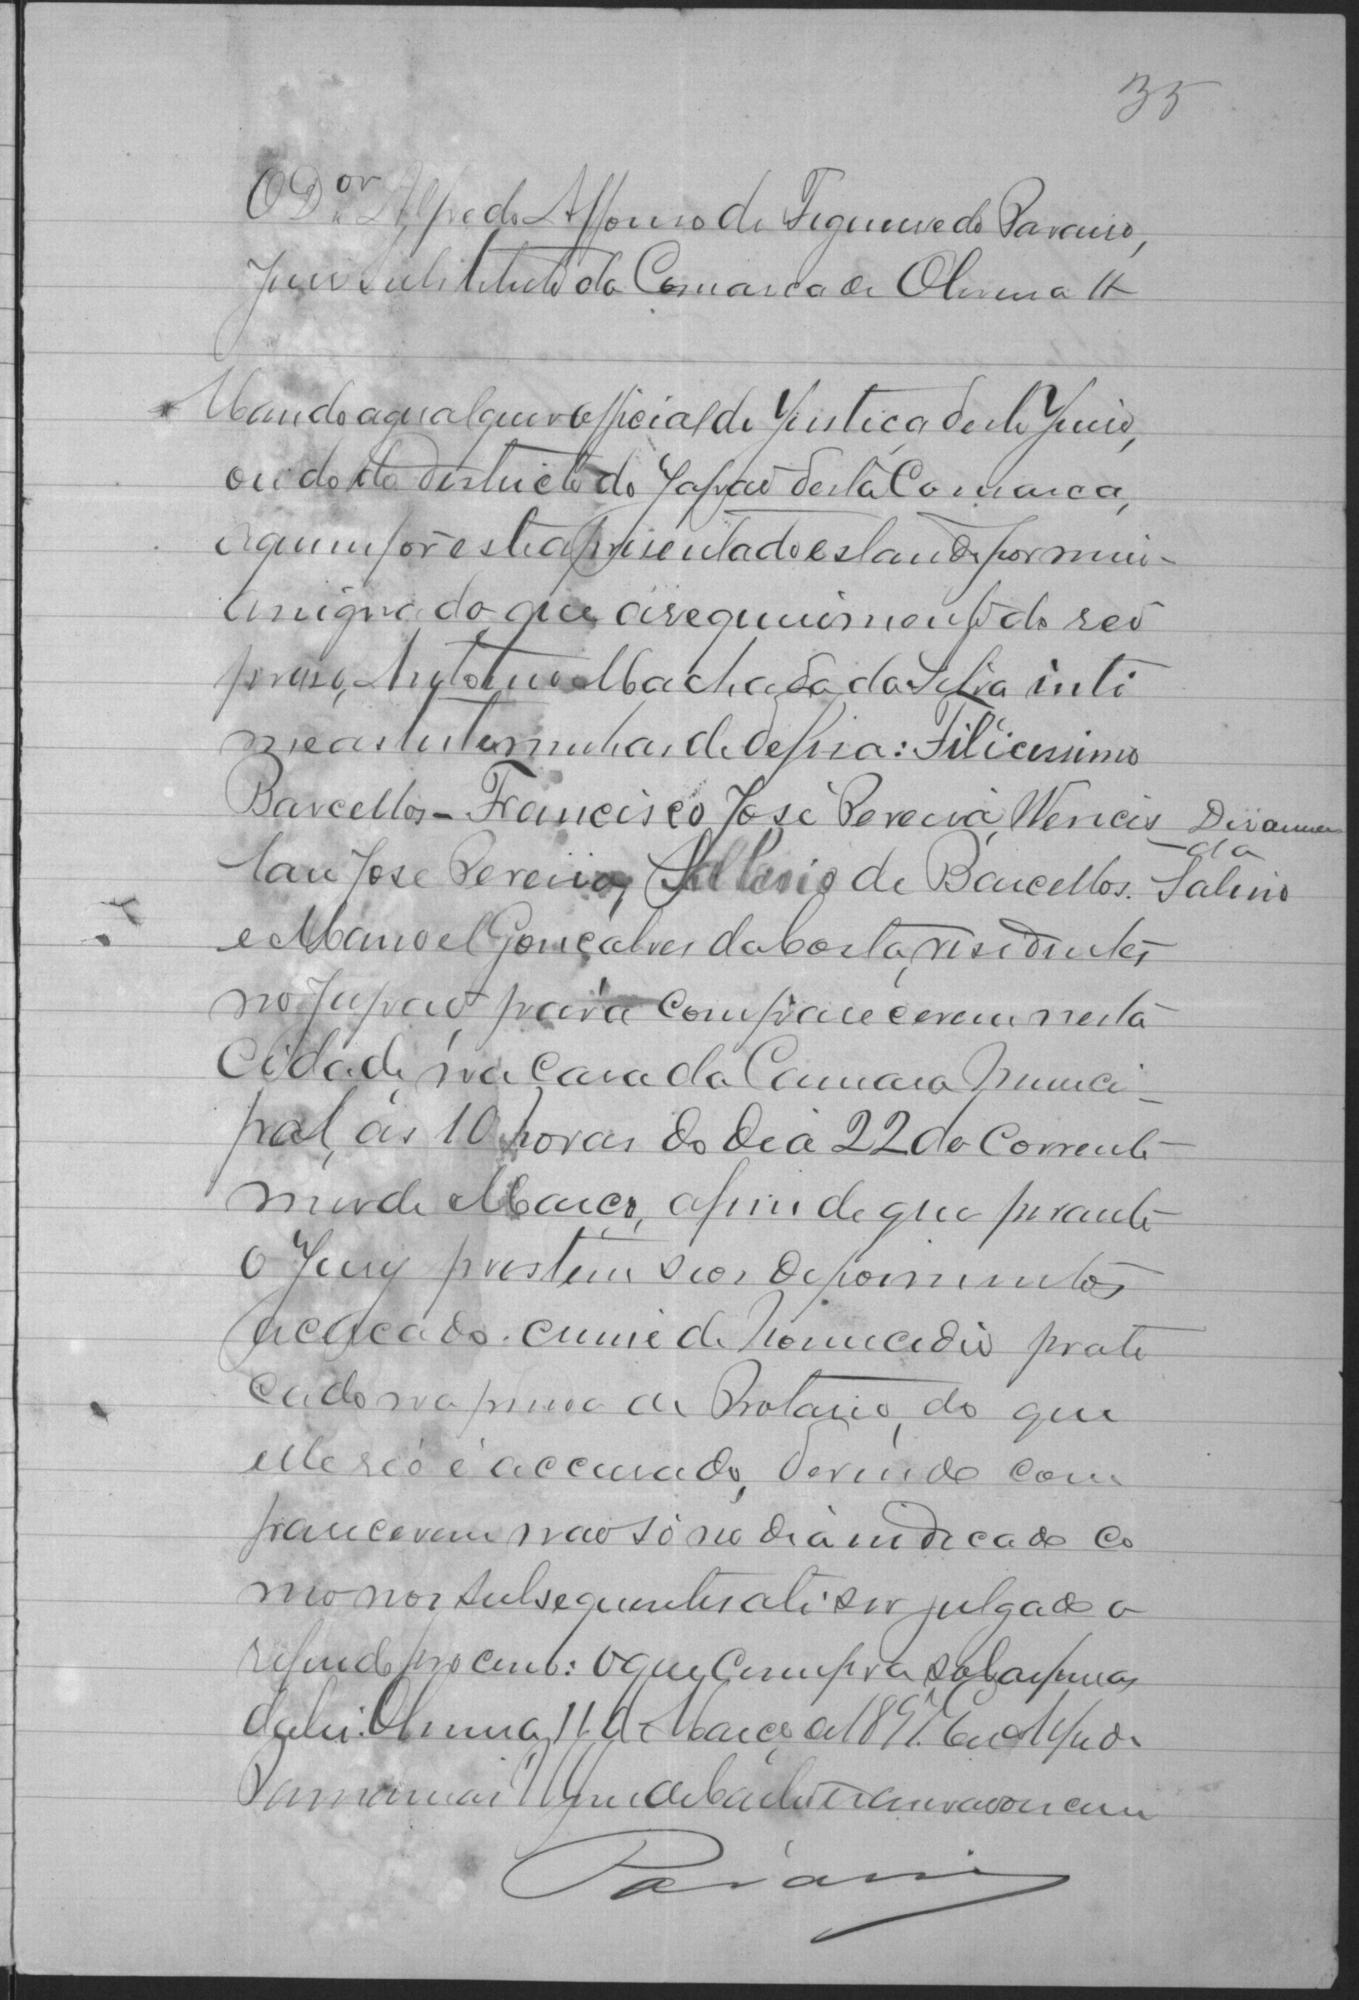 35
O D.or Alfredo Affonso de Figueiredo Paraiso,
Juiz Substituto da Comarca de Oliveira &
Mando a qualquer official de Justiça deste Juizo,
ou do do districto do Japão desta Comarca,
a quem fôr este apresentado estando por mim
assignado que a requerimento do reo
preso, Antonio Machado da Silva inti
me as testemunhas de defesa: Felicissimo
Barcellos - Francisco José Pereira, Wences
lau José Pereira, de Barcellos.
Digo em
da
Salino
e Manoel Gonçalves da Costa, residentes
no Japão para comparecerem nesta
Cidade, na casa da Camara Munici
pal, ás 10 horas do dia 22 do corrente
mez de Março, afim de que perante
o Jury prestem seos depoimentos
acerca do crime de homicidio prati
cado na pessoa de Protasio, do que
elle réo é accusado, devendo com
parecerem não só no dia indicado co
mo nos subsequentes até ser julgado o
referido processo: o que cumpra sob as penas
da lei. Oliveira, 11 de Março de 1897. Eu
escrevi
Paraiso